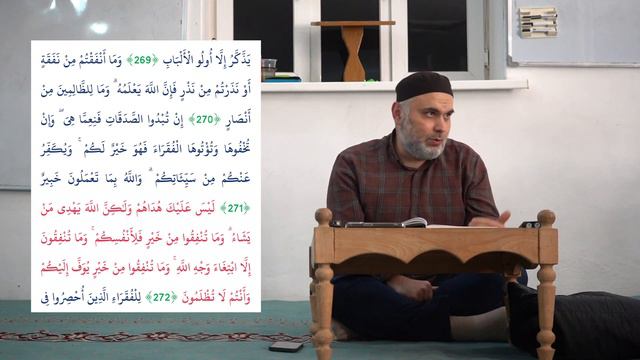 يَذَّكَّرُ إِلَّا أُولُو الْأَلْبَابِ ﴿269﴾ وَمَا أَنْفَقْتُمْ مِنْ نَفَقَةٍ
أَوْ نَذَرْتُمْ مِنْ نَذْرٍ فَإِنَّ اللَّهَ يَعْلَمُهُ ۗ وَمَا لِلظَّالِمِينَ مِنْ
أَنْصَارٍ ﴿270﴾ إِنْ تُبْدُوا الصَّدَقَاتِ فَنِعِمَّا هِىَ ۖ وَإِنْ
تُخْفُوهَا وَتُؤْتُوهَا الْفُقَرَاءَ فَهُوَ خَيْرٌ لَكُمْ ۚ وَيُكَفِّرُ
عَنْكُمْ مِنْ سَيِّئَاتِكُمْ ۗ وَاللَّهُ بِمَا تَعْمَلُونَ خَبِيرٌ
﴿271﴾ لَيْسَ عَلَيْكَ هُدَاهُمْ وَلَٰكِنَّ اللَّهَ يَهْدِى مَنْ
يَشَاءُ ۗ وَمَا تُنْفِقُوا مِنْ خَيْرٍ فَلِأَنْفُسِكُمْ ۚ وَمَا تُنْفِقُونَ
إِلَّا ابْتِغَاءَ وَجْهِ اللَّهِ ۚ وَمَا تُنْفِقُوا مِنْ خَيْرٍ يُوَفَّ إِلَيْكُمْ
وَأَنْتُمْ لَا تُظْلَمُونَ ﴿272﴾ لِلْفُقَرَاءِ الَّذِينَ أُحْصِرُوا فِى